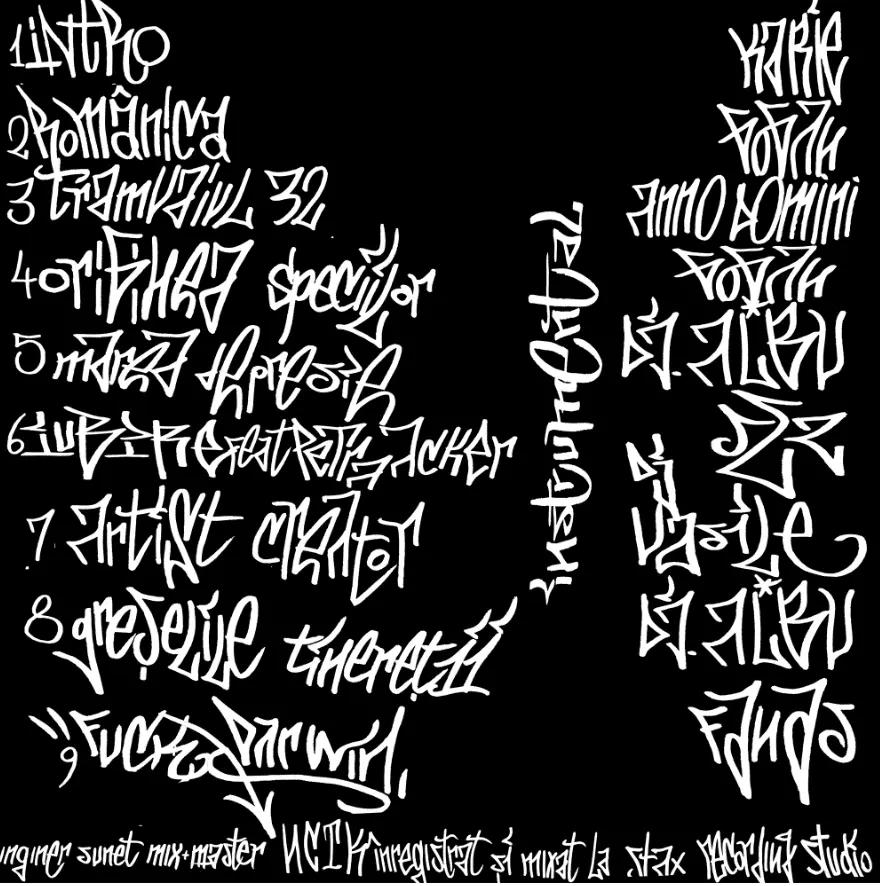 1 intro
2 Românica
3 tramvaiul 32
4 originea speciilor
5 marea depresie
6 iubire feat Petra Acker
7 Artist creator
8 greșelile tinereții
9 Fuck Darwin
instrumental
Karie
anno domini
DJ. AL*BU
DJ Vasile
DJ. AL*BU
Fands
inginer sunet mix+master NCTK înregistrat și mixat la stax recording studio